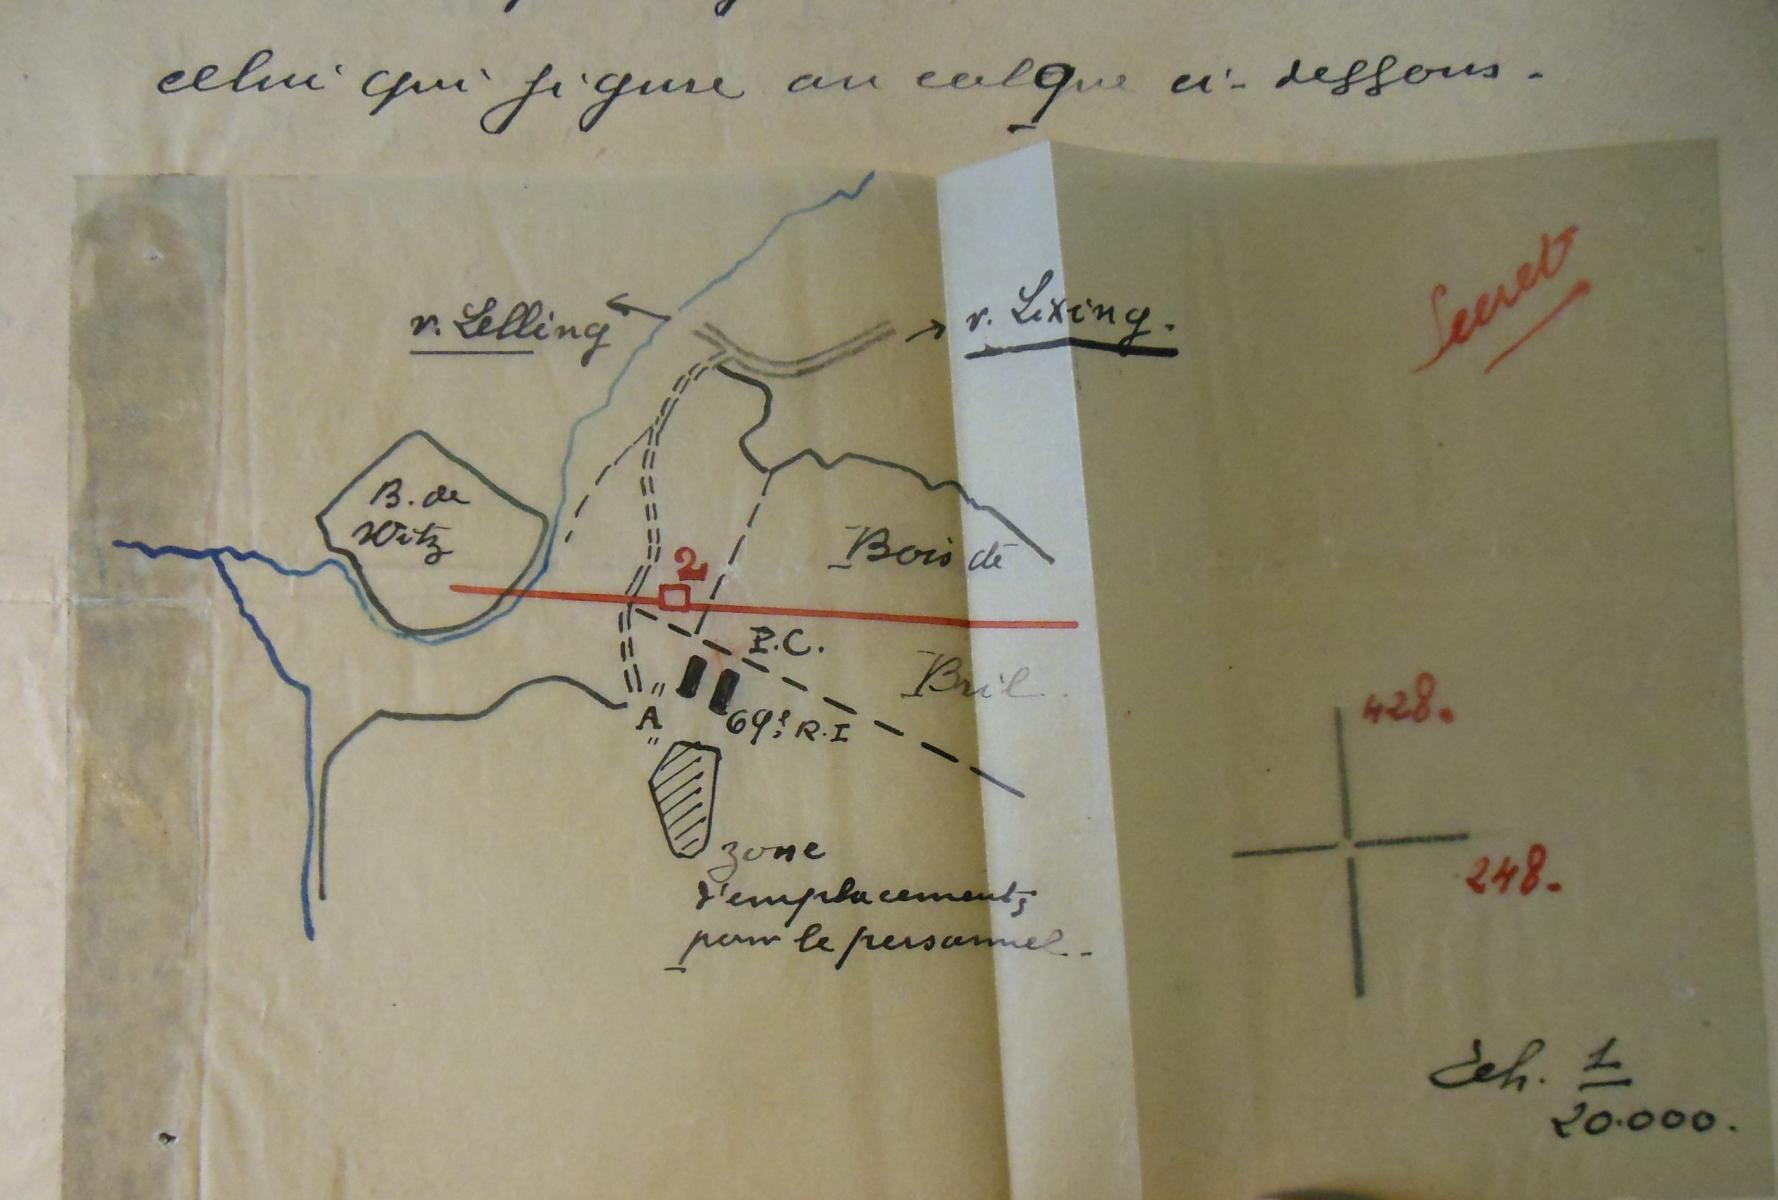 celui qui figure au calque ci-dessous.
Secret
v. Lelling
v. Lixing.
B. de
Witz
2
Bois de
P.C.
Bril.
"
A
"
69e R.I
428.
248.
zone
d'emplacements
pour le personnel.
Ech. 1
20.000.